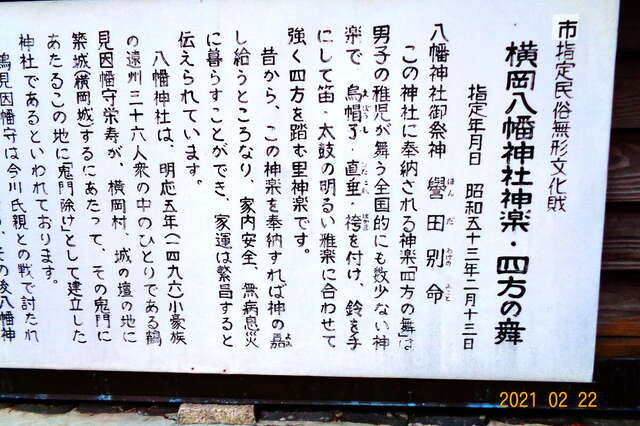 市指定民俗無形文化財
横岡八幡神社神楽・四方の舞
指定年月日 昭和五十三年二月十三日
八幡神社御祭神 誉田別命
ほんだわけのみこと
この神社に奉納される神楽「四方の舞」は
男子の稚児が舞う全国的にも数少ない神
楽で 烏帽子・直垂・袴を付け、鈴を手
えぼうし ひたたれ はかま
にして笛・太鼓の明るい雅楽に合わせて
強く四方を踏む里神楽です。
昔から、この神楽を奉納すれば神の嘉
よみ
し給うところなり、家内安全、無病息災
に暮らすことができ、家運は繁昌すると
伝えられています。
八幡神社は、明応五年(一四九六)小豪族
の遠州三十六人衆の中のひとりである鶴
見因幡守栄寿が、横岡村、城の壇の地に
築城(横岡城)するにあたって、その鬼門に
あたるこの地に「鬼門除け」として建立した
神社であるといわれております。
鶴見因幡守は今川氏親との戦で討たれ
その後八幡神
2021 02 22